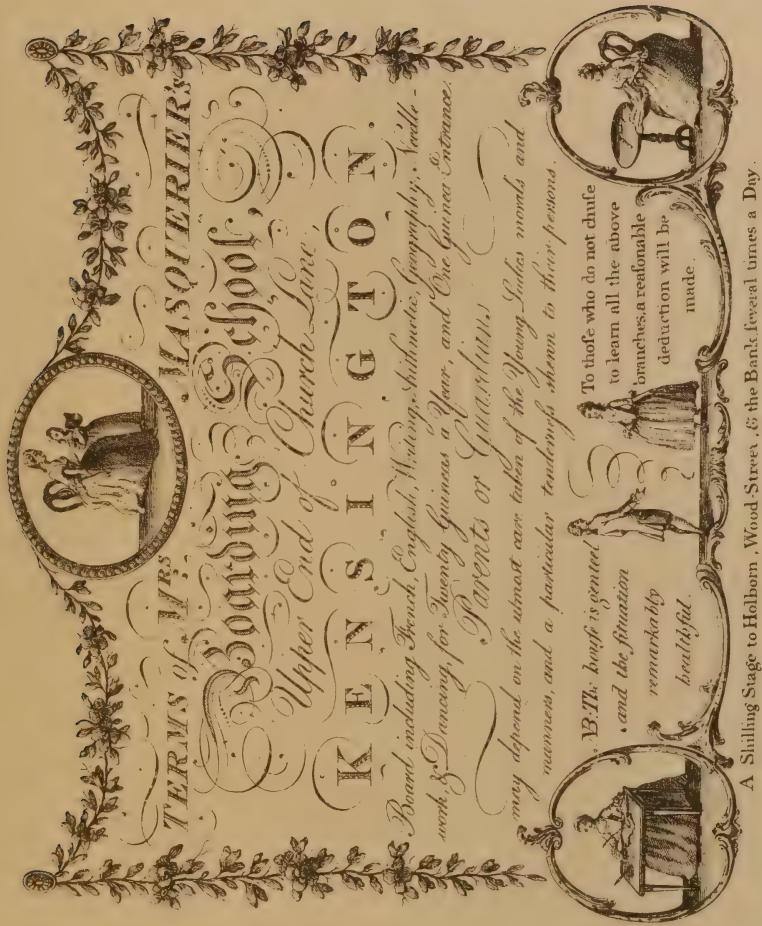 TERMS of Mrs. MASQUERIER's
Boarding School,
Upper End of Church Lane,
KENSINGTON.
Board including French, English, Writing, Arithmetic, Geography, Needle-
work, & Dancing, for Twenty Guineas a Year, and One Guinea Entrance.
Parents or Guardians
may depend on the utmost care taken of the Young Ladies morals and
manners, and a particular tenderness shewn to their persons.
NB. The houſe is genteel
and the ſituation
remarkably
healthful.
To thoſe who do not chuſe
to learn all the above
branches, a reaſonable
deduction will be
made.
A Shilling Stage to Holborn, Wood Street, & the Bank ſeveral times a Day.